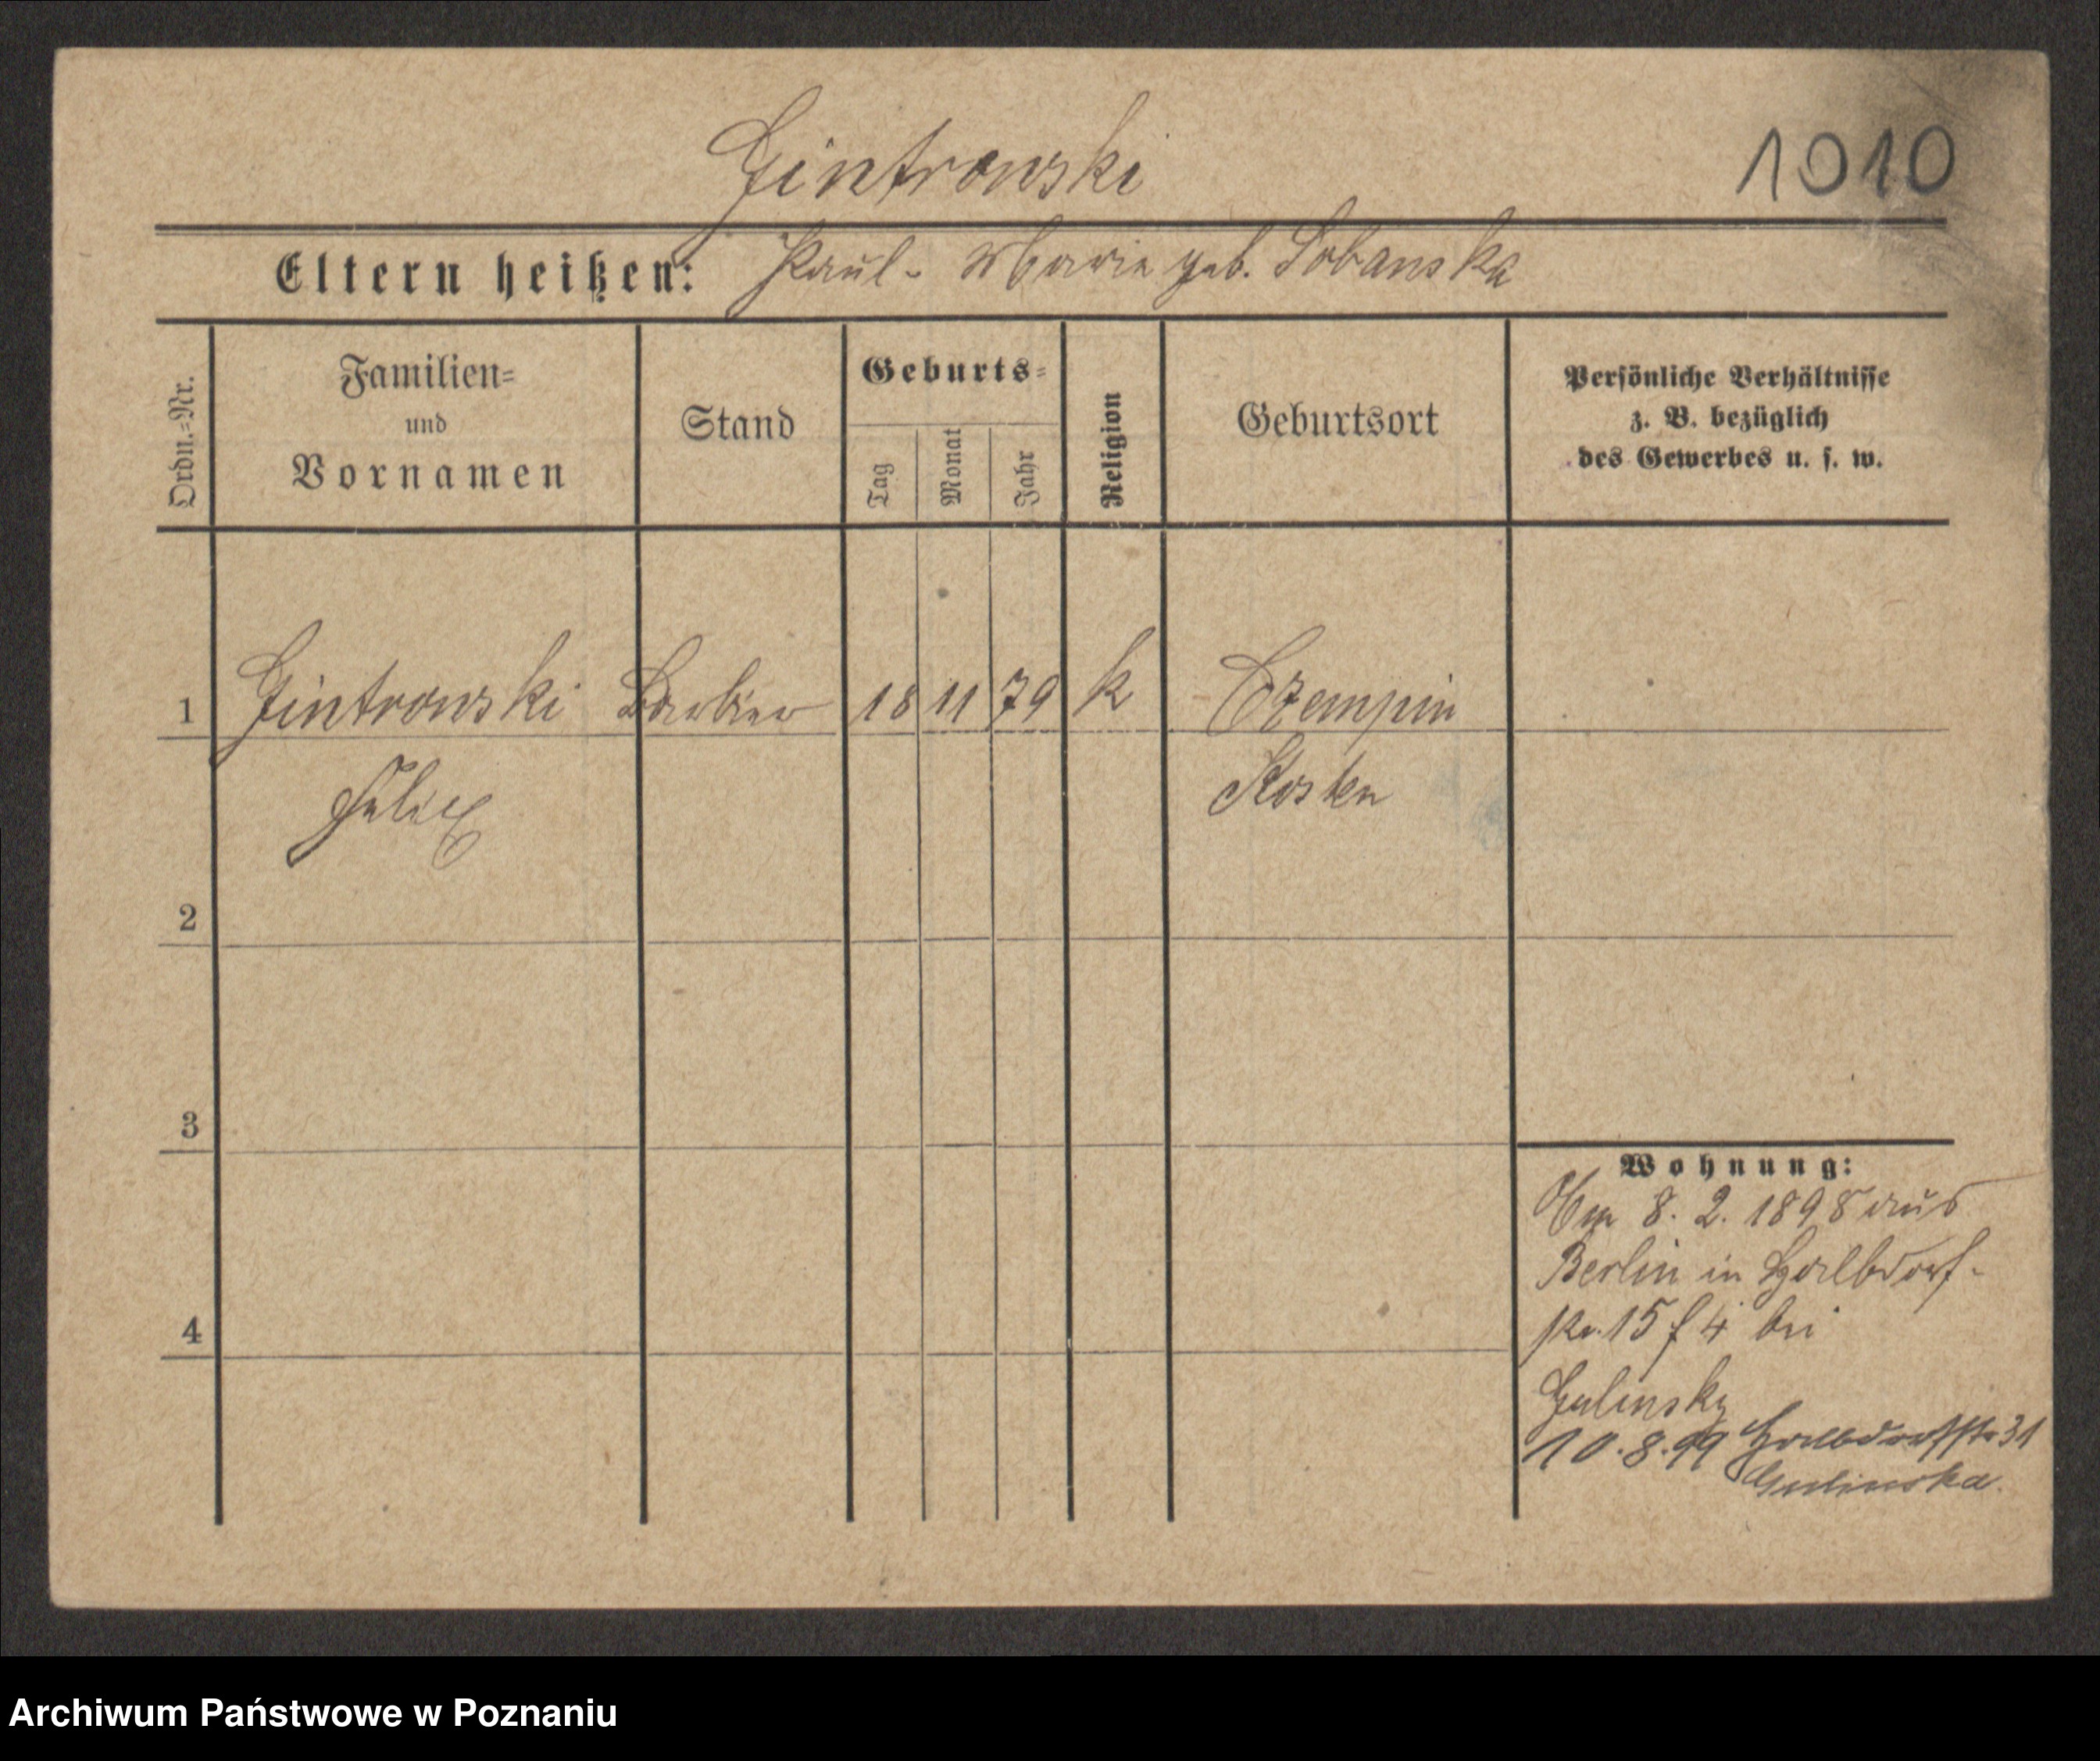 Gintrowski
1010
Eltern heißen: Paul - Marie geb. Sobanska
Ordn.=Nr.
Familien=
und
Vornamen
Stand
Geburts=
Tag
Monat
Jahr
Religion
Geburtsort
Persönliche Verhältnisse
z. B. bezüglich
des Gewerbes u. s. w.
1 Gintrowski Barbier 18 11 79 k Czempin
Felix Kosten
2
3
4
Wohnung:
8. 2. 1898 aus
Berlin in Halbdorf-
str. 15 f 4 bei
Gulinsky
10.8.99 Halbdorfstr 31
Gulinska.
Archiwum Państwowe w Poznaniu